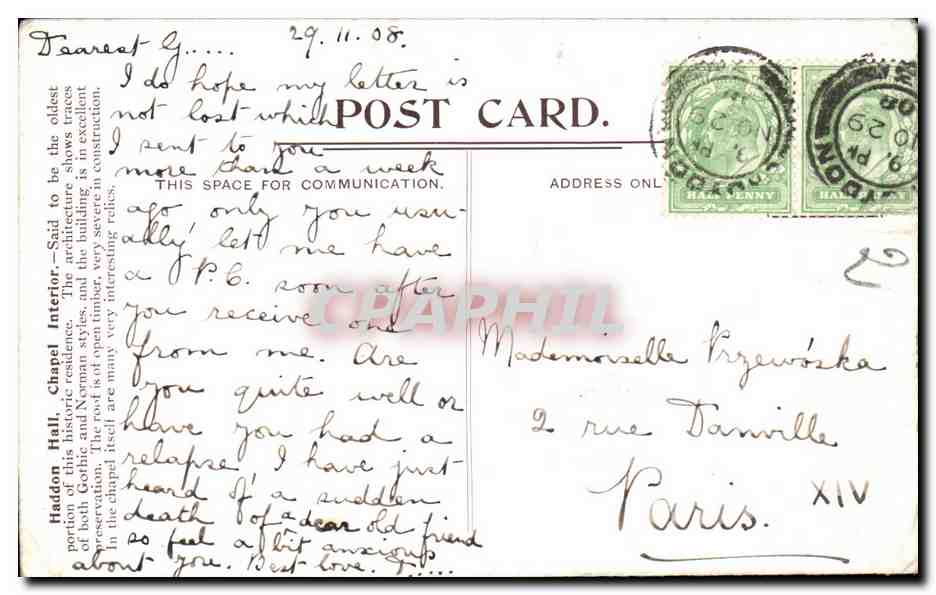 Dearest G.....
29.11.08.
I do hope my letter is
not lost which
I sent to you
more than a week
ago only you usu-
ally let me have
a P.C. soon after
you receive one
from me. Are
you quite well or
have you had a
relapse, I have just
heard of a sudden
death of a dear old friend
so feel a bit anxious
about you. Best love. T.....
POST CARD.
THIS SPACE FOR COMMUNICATION.
ADDRESS ONL
HALF PENNY
HALF PENNY
Mademoiselle Przewóska
2 rue Danville
Paris. XIV
Haddon Hall, Chapel Interior.—Said to be the oldest
portion of this historic residence. The architecture shows traces
of both Gothic and Norman styles, and the building is in excellent
preservation. The roof is of open timber, very severe in construction.
In the chapel itself are many very interesting relics.
CPAPHIL